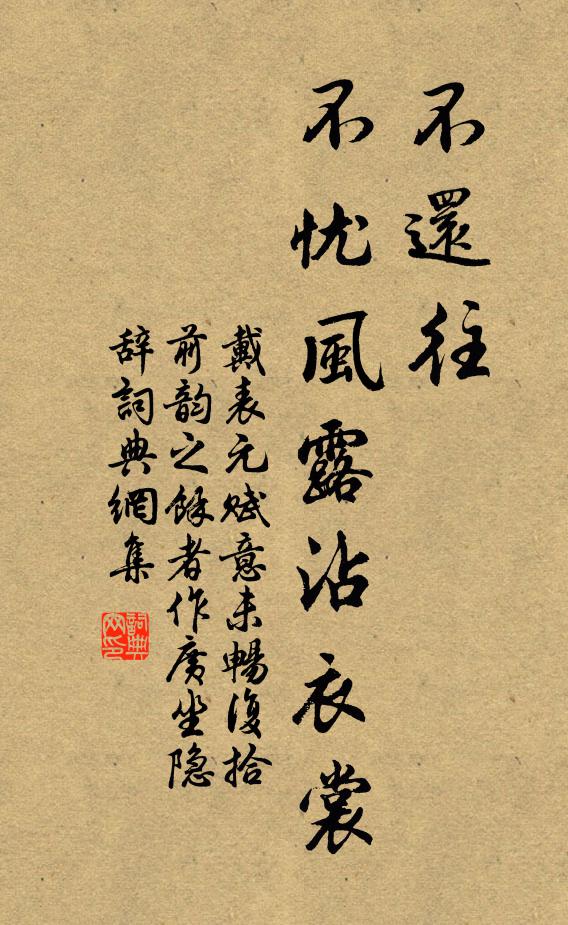 不還往
不忧風露沾衣裳
戴表元賦意未暢復拾
前韵之餘者作廣坐隐
辞詞典網集
詞典网印